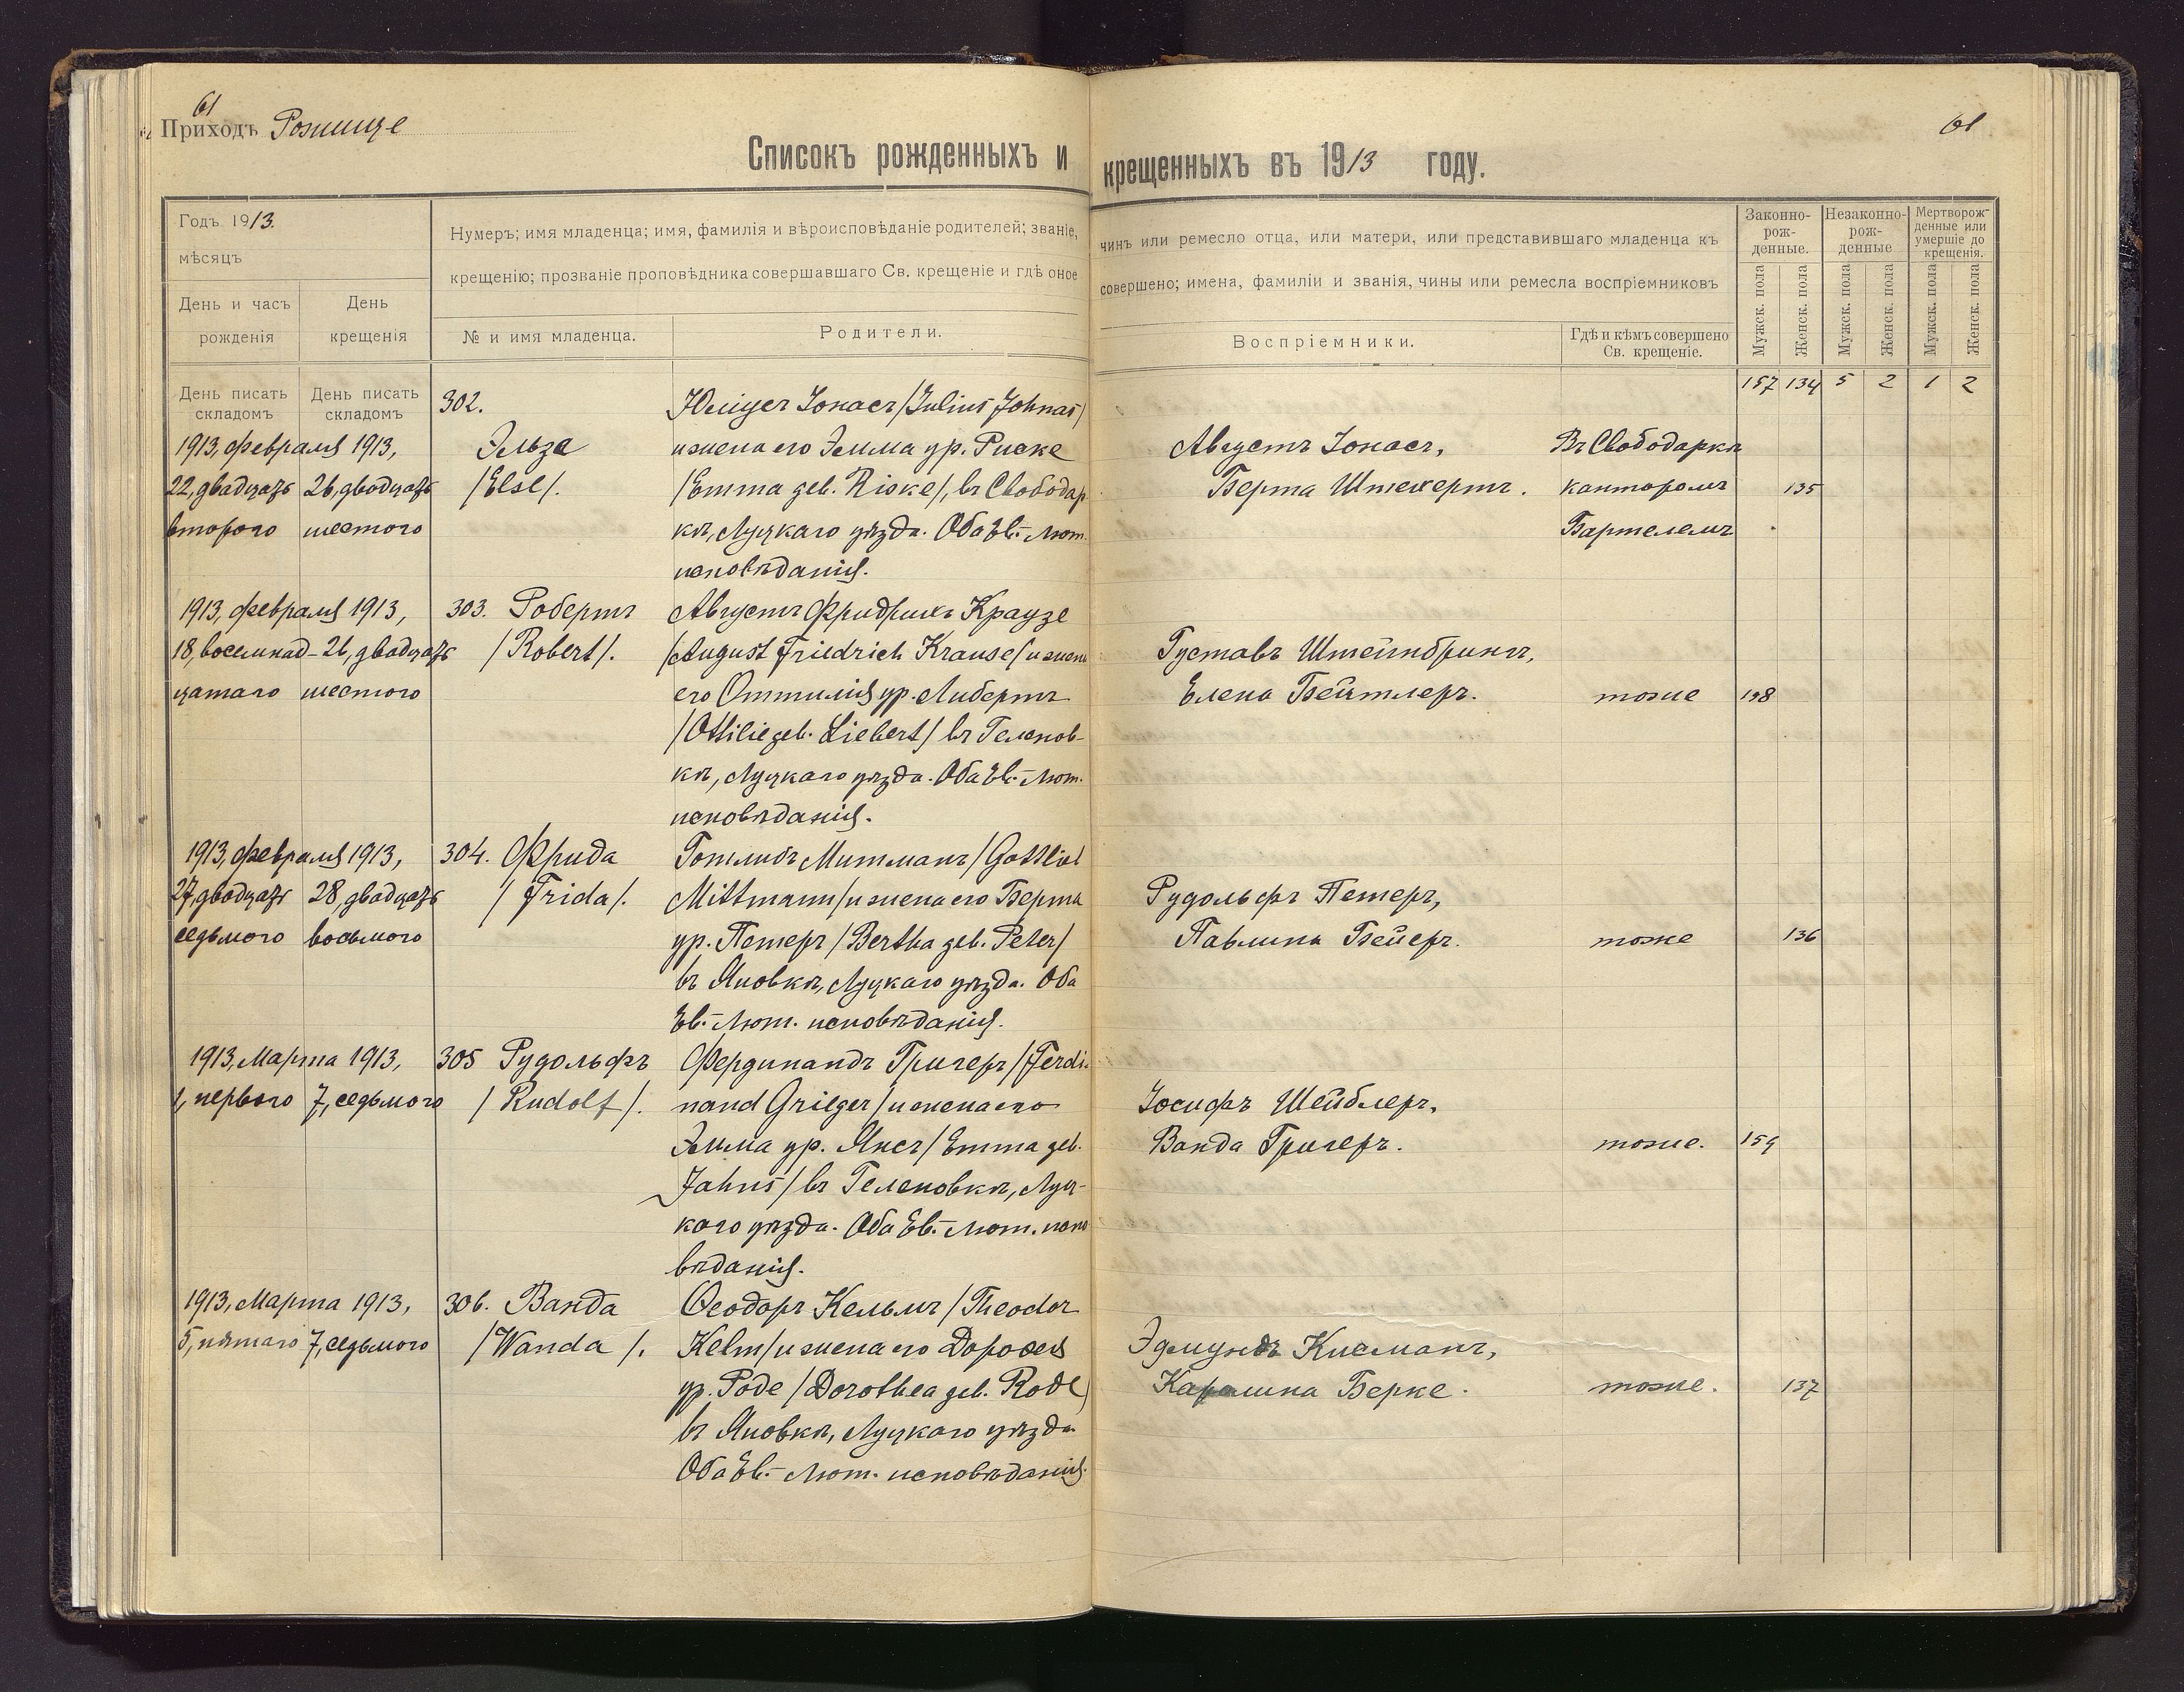 61
Приходъ Рожище
61
Списокъ рожденныхъ и крещенныхъ въ 1913 году.
Годъ 1913.
мѣсяцъ
День и часъ рожденія
День крещенія
Нумеръ; имя младенца; имя, фамилія и вѣроисповѣданіе родителей; званіе, чинъ или ремесло отца, или матери, или представившаго младенца къ
крещенію; прозваніе проповѣдника совершавшаго Св. крещеніе и гдѣ оное совершено; имена, фамиліи и званія, чины или ремесла воспріемниковъ
№ и имя младенца.
Родители.
Воспріемники.
Гдѣ и кѣмъ совершено
Св. крещеніе.
Законно-
рож-
денные.
Незаконно-
рож-
денные
Мертворож-
денные или
умершіе до
крещенія.
Мужск. пола
Женск. пола
Мужск. пола
Женск. пола
Мужск. пола
Женск. пола
157 134 5 2 1 2
День писать
складомъ
День писать
складомъ
1913, февраля 1913,
22, двадцать 26, двадцать
второго шестого
302.
Эльза
/Else/.
Юліусъ Іонасъ /Julius Johnas/
и жена его Эмма ур. Риске
/Emma geb. Riske/, въ Свободар
кѣ, Луцкаго уѣзда. Оба Ев.-Лют.
исповѣданія.
Августъ Іонасъ,
Берта Штекертъ.
Въ Свободаркѣ
канторомъ
Бартелемъ
135
1913, февраля 1913,
18, восемнад- 26, двадцать
цатаго шестого
303. Робертъ
/Robert/.
Августъ Фридрихъ Краузе
/August Friedrich Krause/ и жена
его Оттилія ур. Либертъ
/Ottilie geb. Liebert/ въ Геленов-
кѣ, Луцкаго уѣзда. Оба Ев.-Лют.
исповѣданія.
Густавъ Штейнбринкъ,
Елена Бейтлеръ.
тоже
158
1913, февраля 1913,
27, двадцать 28, двадцать
седьмого восьмого
304. Фрида
/Frida/.
Готлибъ Митманъ /Gottlieb
Mittmann/ и жена его Берта
ур. Петеръ /Bertha geb. Peter/
въ Яновкѣ, Луцкаго уѣзда. Оба
Ев.-Лют. исповѣданія.
Рудольфъ Петеръ,
Павлина Бейеръ.
тоже
136
1913, Марта 1913,
1, первого 7, седьмого
305 Рудольфъ
/Rudolf/.
Фердинандъ Григеръ /Ferdi-
nand Grieger/ и жена его
Эмма ур. Янсъ /Emma geb.
Jahns/ въ Геленовкѣ, Луц-
каго уѣзда. Оба Ев.-Лют. испо
вѣданія.
Іосифъ Шейблеръ,
Ванда Григеръ.
тоже.
159
1913, Марта 1913,
5, пятаго 7, седьмого
306. Ванда
/Wanda/.
Ѳеодоръ Кельмъ /Theodor
Kelm/ и жена его Дороѳея
ур. Роде /Dorothea geb. Rode/
въ Яновкѣ, Луцкаго уѣзда
Оба Ев.-Лют. исповѣданія.
Эдмундъ Кисманъ,
Каролина Берке.
тоже.
137